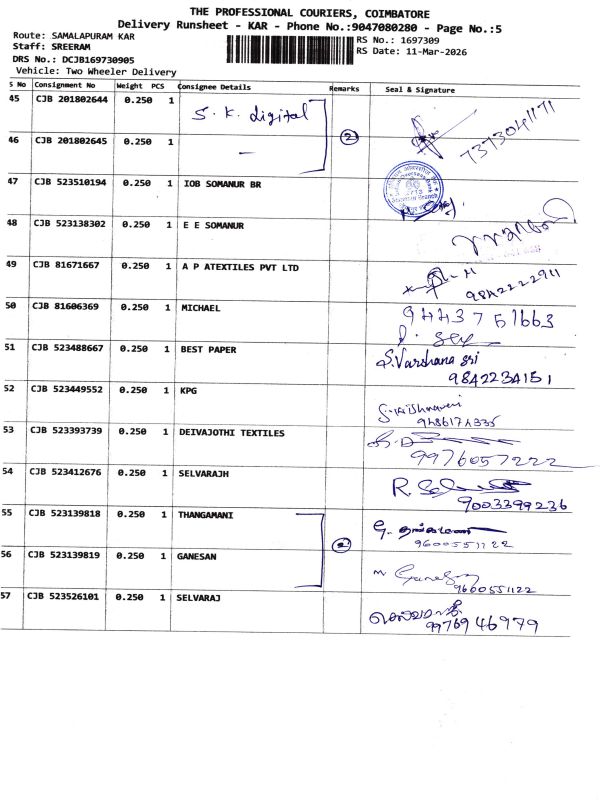 THE PROFESSIONAL COURIERS, COIMBATORE
Delivery Runsheet - KAR - Phone No.:9047080280 - Page No.:5
Route: SAMALAPURAM KAR
RS No.: 1697309
Staff: SREERAM
RS Date: 11-Mar-2026
DRS No.: DCJB169730905
Vehicle: Two Wheeler Delivery
S No Consignment No Weight PCS Consignee Details Remarks Seal & Signature
45 CJB 201802644 0.250 1 S. K. digital 7373041171
46 CJB 201802645 0.250 1 — 2
47 CJB 523510194 0.250 1 IOB SOMANUR BR
48 CJB 523138302 0.250 1 E E SOMANUR
49 CJB 81671667 0.250 1 A P ATEXTILES PVT LTD 9842222911
50 CJB 81606369 0.250 1 MICHAEL 9443751663
51 CJB 523488667 0.250 1 BEST PAPER S.Varshana sri
9842234151
52 CJB 523449552 0.250 1 KPG
53 CJB 523393739 0.250 1 DEIVAJOTHI TEXTILES
9976057222
54 CJB 523412676 0.250 1 SELVARAJH
9003399236
55 CJB 523139818 0.250 1 THANGAMANI
9600551122
56 CJB 523139819 0.250 1 GANESAN 2 M Ganesan
9600551122
57 CJB 523526101 0.250 1 SELVARAJ
9976946979